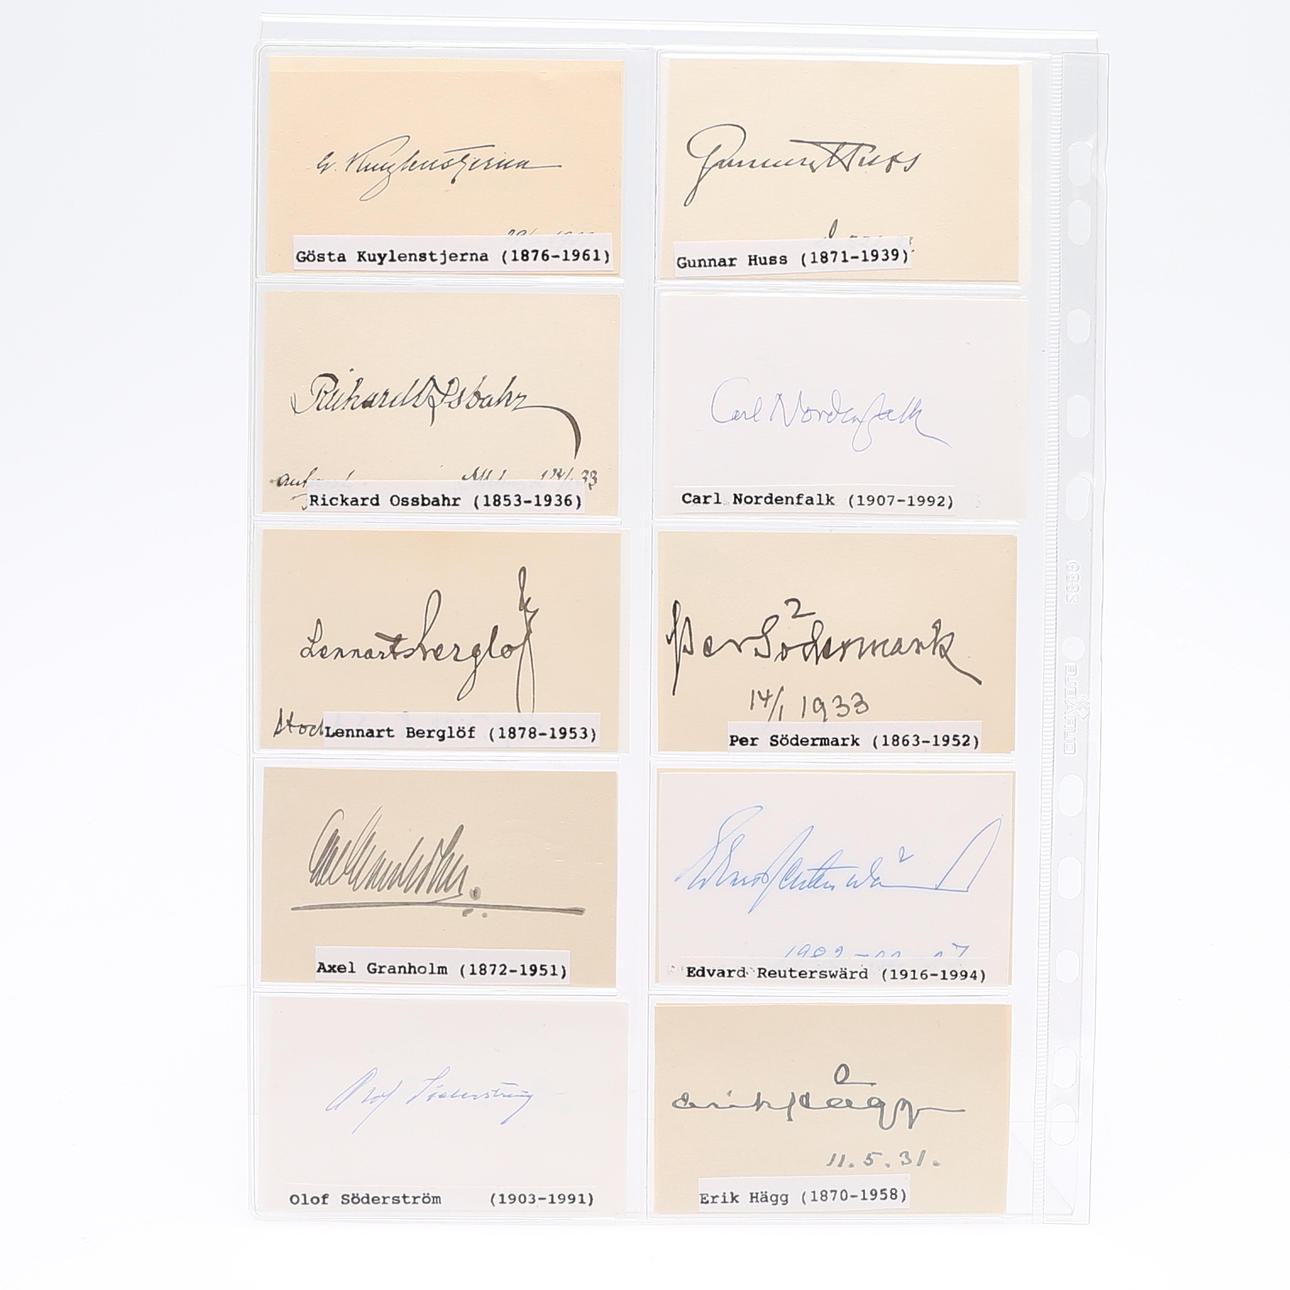 G. Kuylenstjerna
Gösta Kuylenstjerna (1876-1961)
Gunnar Huss
Gunnar Huss (1871-1939)
Rickard Ossbahr
Rickard Ossbahr (1853-1936)
Carl Nordenfalk
Carl Nordenfalk (1907-1992)
Lennart Berglöf
Lennart Berglöf (1878-1953)
Per Södermark
14/1 1933
Per Södermark (1863-1952)
Axel Granholm (1872-1951)
Edvard Reuterswärd (1916-1994)
Olof Söderström
Olof Söderström (1903-1991)
Erik Hägg
11.5.31.
Erik Hägg (1870-1958)